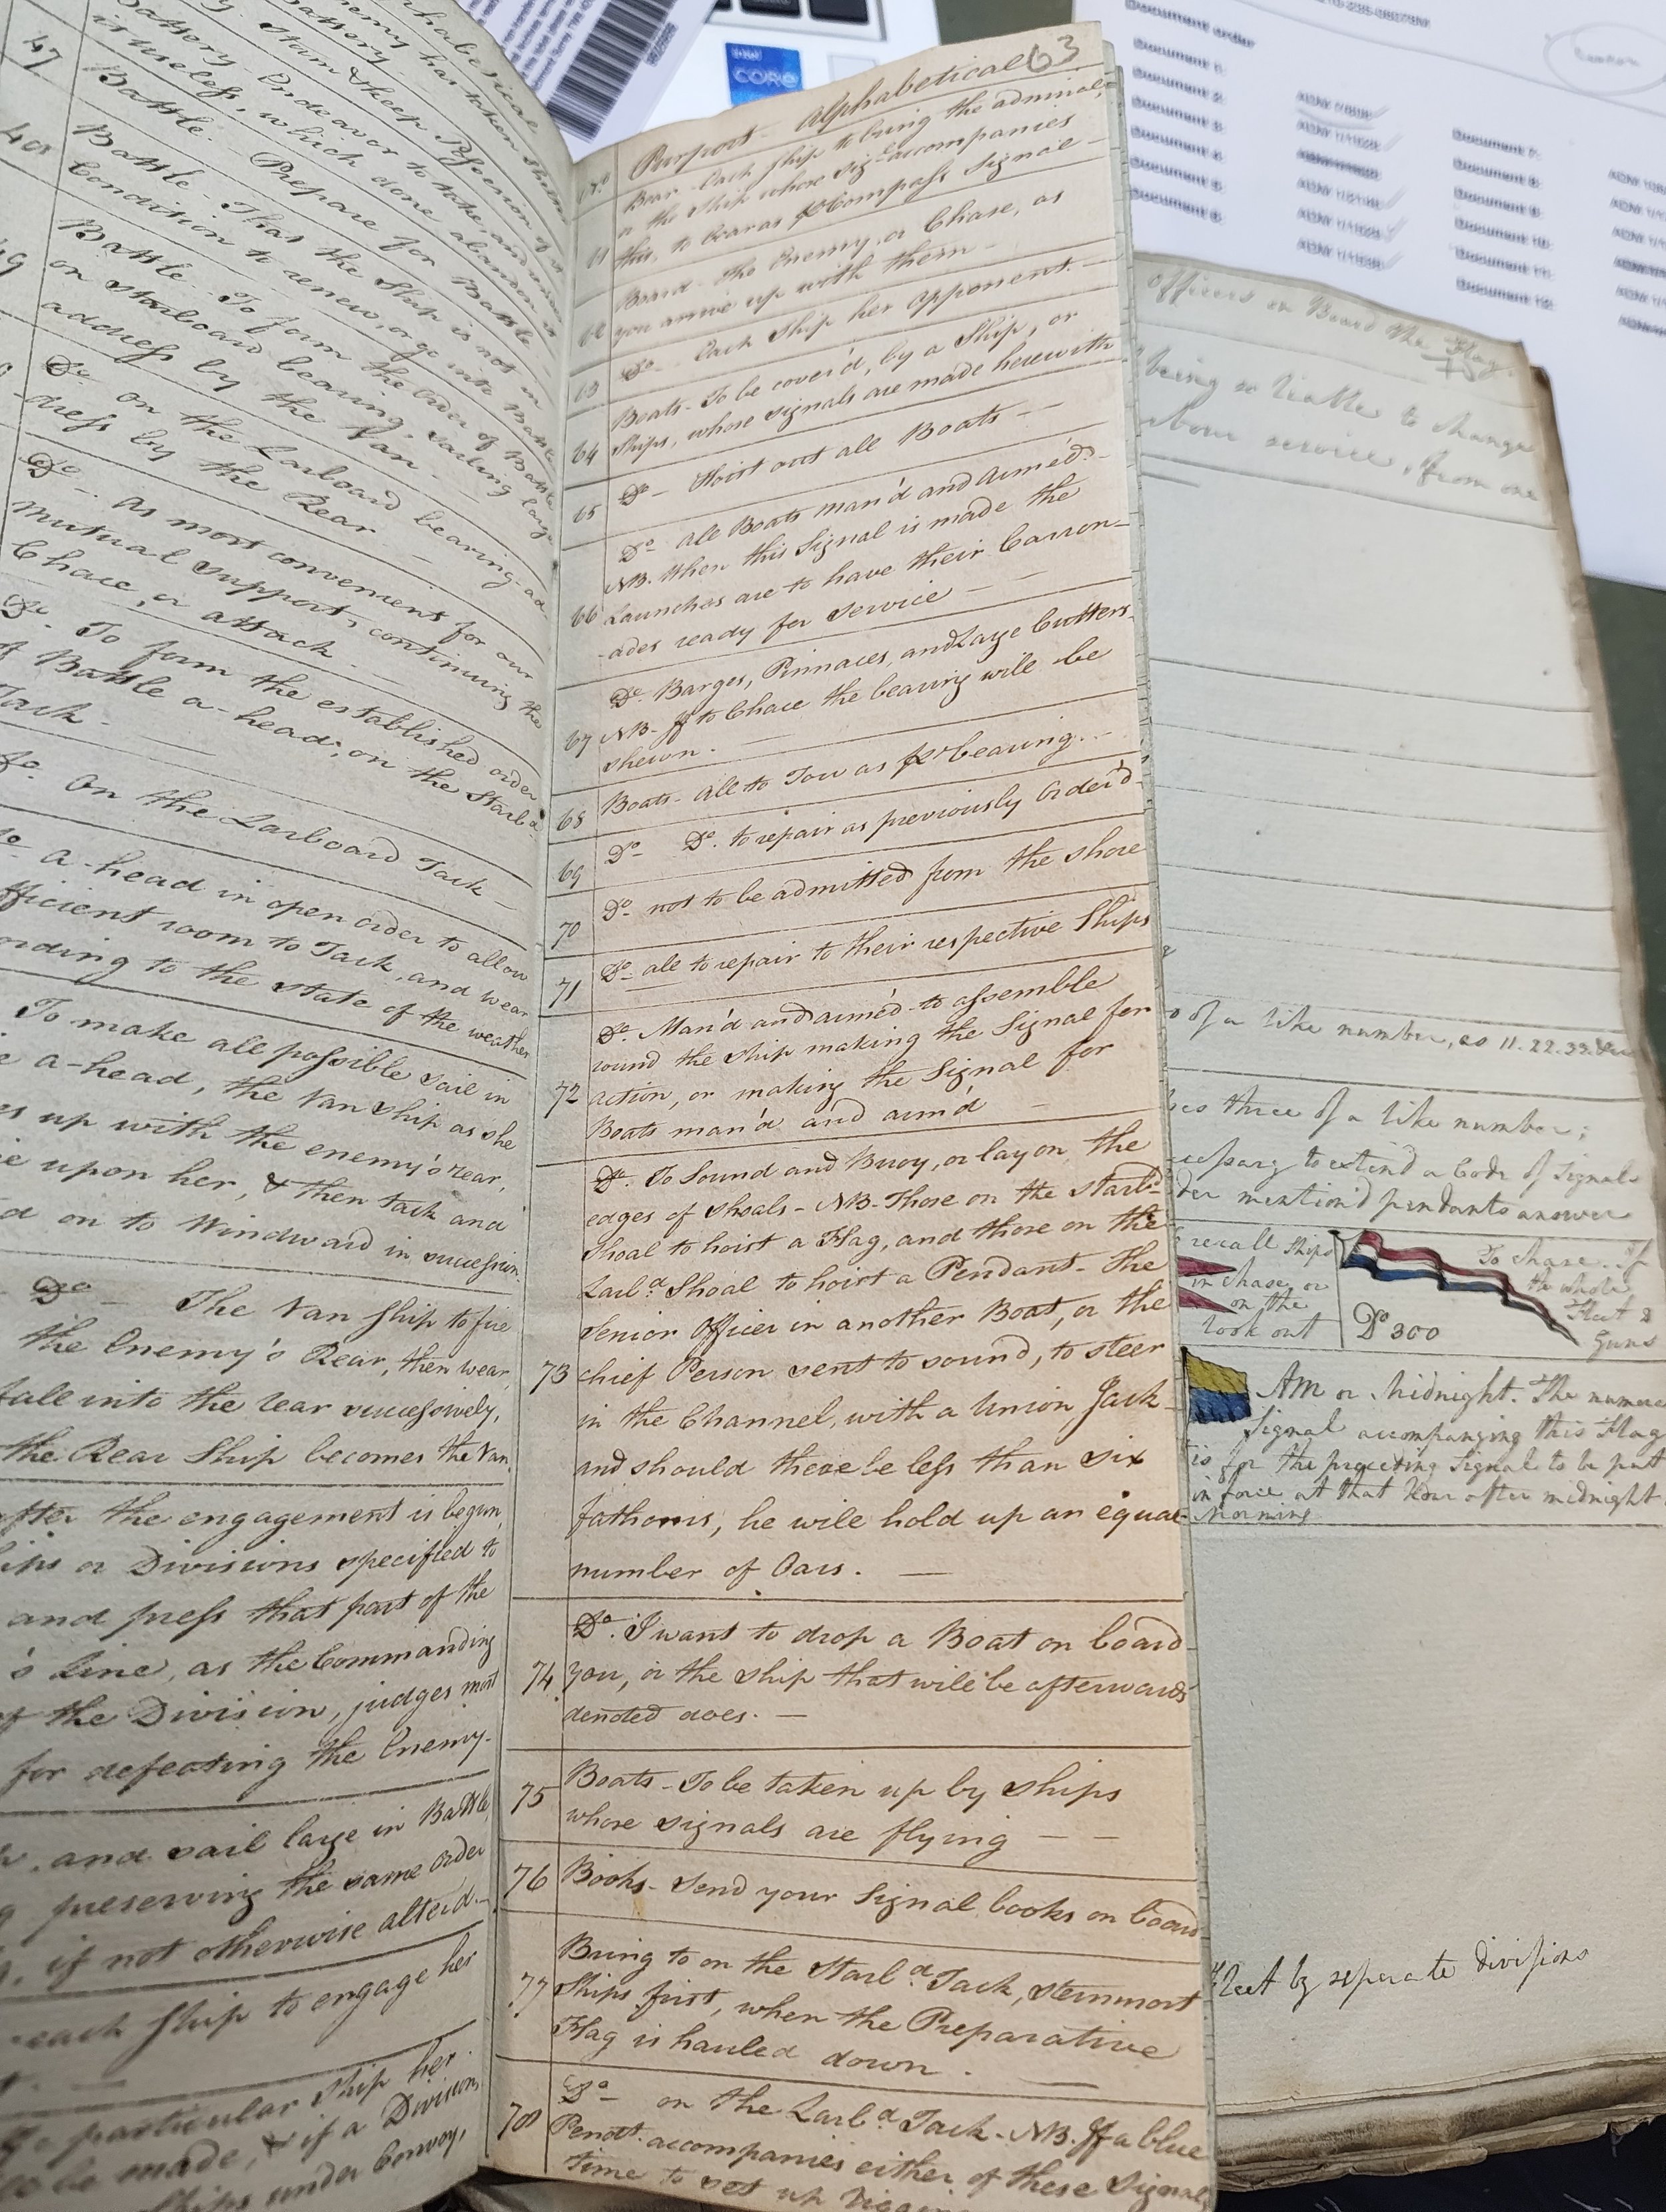 47
Battery. Endeavor to take, and
is useless, which done abandon it
Battle - Prepare for Battle
Battle - That the Ship is not in
Condition to renew, or go into Battle
Battle - To form the Order of Battle
on starboard bearing, sailing large
address by the Van
Do. on the Larboard bearing - ad
dress by the Rear
Do. as most convenient for our
mutual support, continuing the
Chace, or attack
Do. To form the established order
of Battle a-head, on the Starbd.
Tack -
Do. On the Larboard Tack
a-head in open order to allow
fficient room to Tack, and wear
ording to the state of the weather
To make all possible sail in
a-head, the Van Ship as she
es up with the enemy's rear,
ie upon her, & then tack and
d on to Windward in succession.
Do - The Van Ship to fire
the Enemy's Rear, then wear,
fall into the rear successively,
the Rear Ship becomes the Van.
after the engagement is begun,
hips or Divisions specified to
and press that part of the
's Line, as the Commanding
of the Division, judges most
for defeating the Enemy.
, and sail large in Battle,
preserving the same order
, if not otherwise alterd.
each Ship to engage her
particular Ship her
to be made, & if a Division
Ships under Convoy,
63
No. Purport - Alphabetical
Bear - Each Ship to bring the admiral,
or the Ship whose sigl. accompanies
61 this, to bear as pr. Compass Signal -
Board - The Enemy, or Chase, as
62 you arrive up with them -
63 Do - Each Ship her opponent. -
Boats - To be cover'd, by a Ship, or
64 Ships, whose signals are made herewith
65 Do - Hoist out all Boats - -
Do. all Boats man'd and arm'd. -
NB. When this Signal is made the
66 Launches are to have their Carron-
-ades ready for service -
Do. Barges, Pinnaces, and Large Cutters.
67 NB. If to Chace the bearing will be
shewn. -
68 Boats - all to Tow as pr. bearing. - -
69 Do - Do. to repair as previously Order'd -
70 Do - not to be admitted from the shore
71 Do - all to repair to their respective Ships
Do. Man'd and arm'd - to assemble
round the ship making the Signal for
72 action, or making the Signal for
Boats man'd and arm'd -
Do. To Sound and Buoy, or lay on the
edges of Shoals - NB. Those on the starbd.
Shoal to hoist a Flag, and those on the
Larbd. Shoal to hoist a Pendant - The
Senior Officer in another Boat, or the
73 chief Person sent to sound, to steer
in the Channel, with a Union Jack -
and should there be less than six
fathoms, he will hold up an equal
number of Oars. -
Do. I want to drop a Boat on board
74 you, or the ship that will be afterwards
denoted does. -
75 Boats - To be taken up by ships
whose signals are flying - -
76 Books - Send your Signal books on board -
Bring to on the Starbd. Tack, sternmost
77 Ships first, when the Preparative
Flag is hauled down. -
Do - on the Larbd. Tack - NB. If a blue
78 Pendt. accompanies either of these signals,
time to set up
intel
CORE
Document order
Document 1:
Document 2:
Document 3:
Document 4:
Document 5:
Document 6:
Document 7:
Document 8:
Document 9:
Document 10:
Document 11:
Document 12:
officers on Board the Flag.
being so liable to change
service, from one
of a like number, as 11.22.33.
three of a like number;
to extend a Code of Signals
mention'd pendants answer
recall ships
in chase, or
on the
look out
To Chase. If
the whole
Fleet 2
Guns
Do 300
AM or Midnight. The numeral
Signal accompanying this Flag
is for the preceding Signal to be put
in force at that hour after midnight
Morning
Fleet by seperate divisions